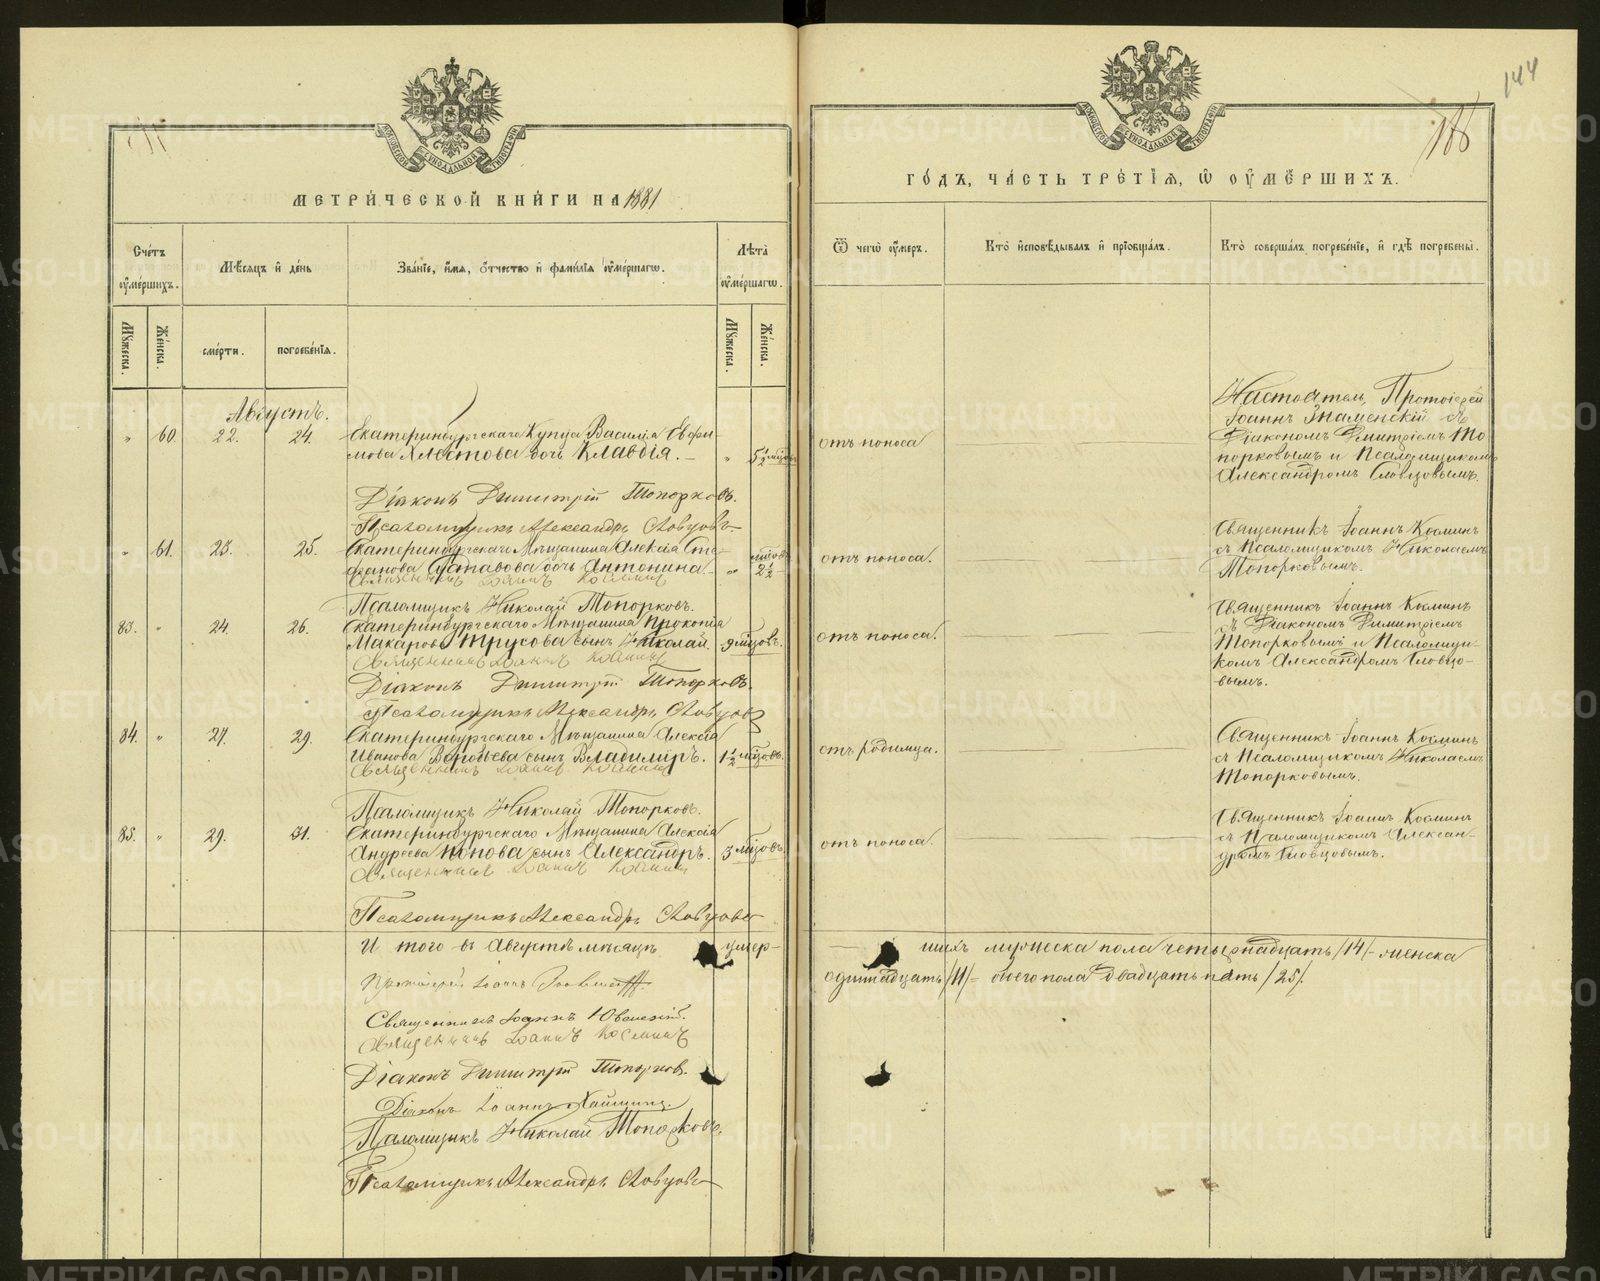 МЕТРИ́ЧЕСКОЙ КНИ́ГИ НА 1881
Сче́тъ оу҆ме́ршихъ.
Мѣ́сяцъ и҆ де́нь
Зва́нїе, и҆́мя, ѻ҆́тчество и҆ фамилїя оу҆ме́ршагѡ.
Лѣта̀ оу҆ме́ршагѡ.
Мꙋ́жеска.
Же́нска.
сме́рти.
погребе́нїя.
Мꙋ́жеска.
Же́нска.
Августъ.
" 60. 22. 24. Екатеринбургскаго Купца Василія Евфи-
мова Хлѣстова дочь Клавдія. " 5 1/2 мѣсяцовъ
Діаконъ Димитрій Топорковъ.
Псаломщикъ Александръ Словцовъ
" 61. 23. 25. Екатеринбургскаго Мѣщанина Алексія Сте-
фанова дочь Антонина. " 2 1/2
Священникъ Іоаннъ Косминъ
Псаломщикъ Николай Топорковъ.
83. " 24. 26. Екатеринбургскаго Мѣщанина Прокопія
Макарова Трусова сынъ Николай. 9 мѣсяцовъ.
Священникъ Іоаннъ Косминъ
Діаконъ Димитрій Топорковъ.
Псаломщикъ Александръ Словцовъ
84. " 27. 29. Екатеринбургскаго Мѣщанина Алексія
Иванова Воробьева сынъ Владиміръ. 1 1/2 мѣсяцовъ.
Священникъ Іоаннъ Косминъ
Псаломщикъ Николай Топорковъ.
85. " 29. 31. Екатеринбургскаго Мѣщанина Алексія
Андреева Попова сынъ Александръ. 3 мѣсяцовъ.
Священникъ Іоаннъ Косминъ
Псаломщикъ Александръ Словцовъ
И того въ Августѣ мѣсяцѣ умер-
Протоіерей Іоаннъ
Священникъ Іоаннъ
Священникъ Іоаннъ Косминъ
Діаконъ Димитрій Топорковъ.
Діаконъ Іоаннъ
Псаломщикъ Николай Топорковъ.
Псаломщикъ Александръ Словцовъ
144
186
ГО́ДЪ, ЧА́СТЬ ТРЕ́ТЇЯ, Ѡ҆ ОУ҆МЕ́РШИХЪ.
Ѿ чегѡ̀ оу҆́меръ.
Кто̀ и҆сповѣ́дывалъ и҆ прїѡбща́лъ.
Кто̀ соверша́лъ погребе́нїе, и҆ гдѣ̀ погребены̀.
отъ поноса
Настоятель Протоіерей
Іоаннъ Знаменскій съ
Діакономъ Димитріемъ То-
порковымъ и Псаломщикомъ
Александромъ Словцовымъ.
отъ поноса.
Священникъ Іоаннъ Косминъ
съ Псаломщикомъ Николаемъ
Топорковымъ.
отъ поноса.
Священникъ Іоаннъ Косминъ
съ Діакономъ Димитріемъ
Топорковымъ и Псаломщи-
комъ Александромъ Словцо-
вымъ.
отъ родимца.
Священникъ Іоаннъ Косминъ
съ Псаломщикомъ Николаемъ
Топорковымъ.
отъ поноса.
Священникъ Іоаннъ Косминъ
съ Псаломщикомъ Алексан-
дромъ Словцовымъ.
шихъ мужеска пола четырнадцать /14/ - женска
одинадцать /11/ - обоего пола двадцать пять /25/.